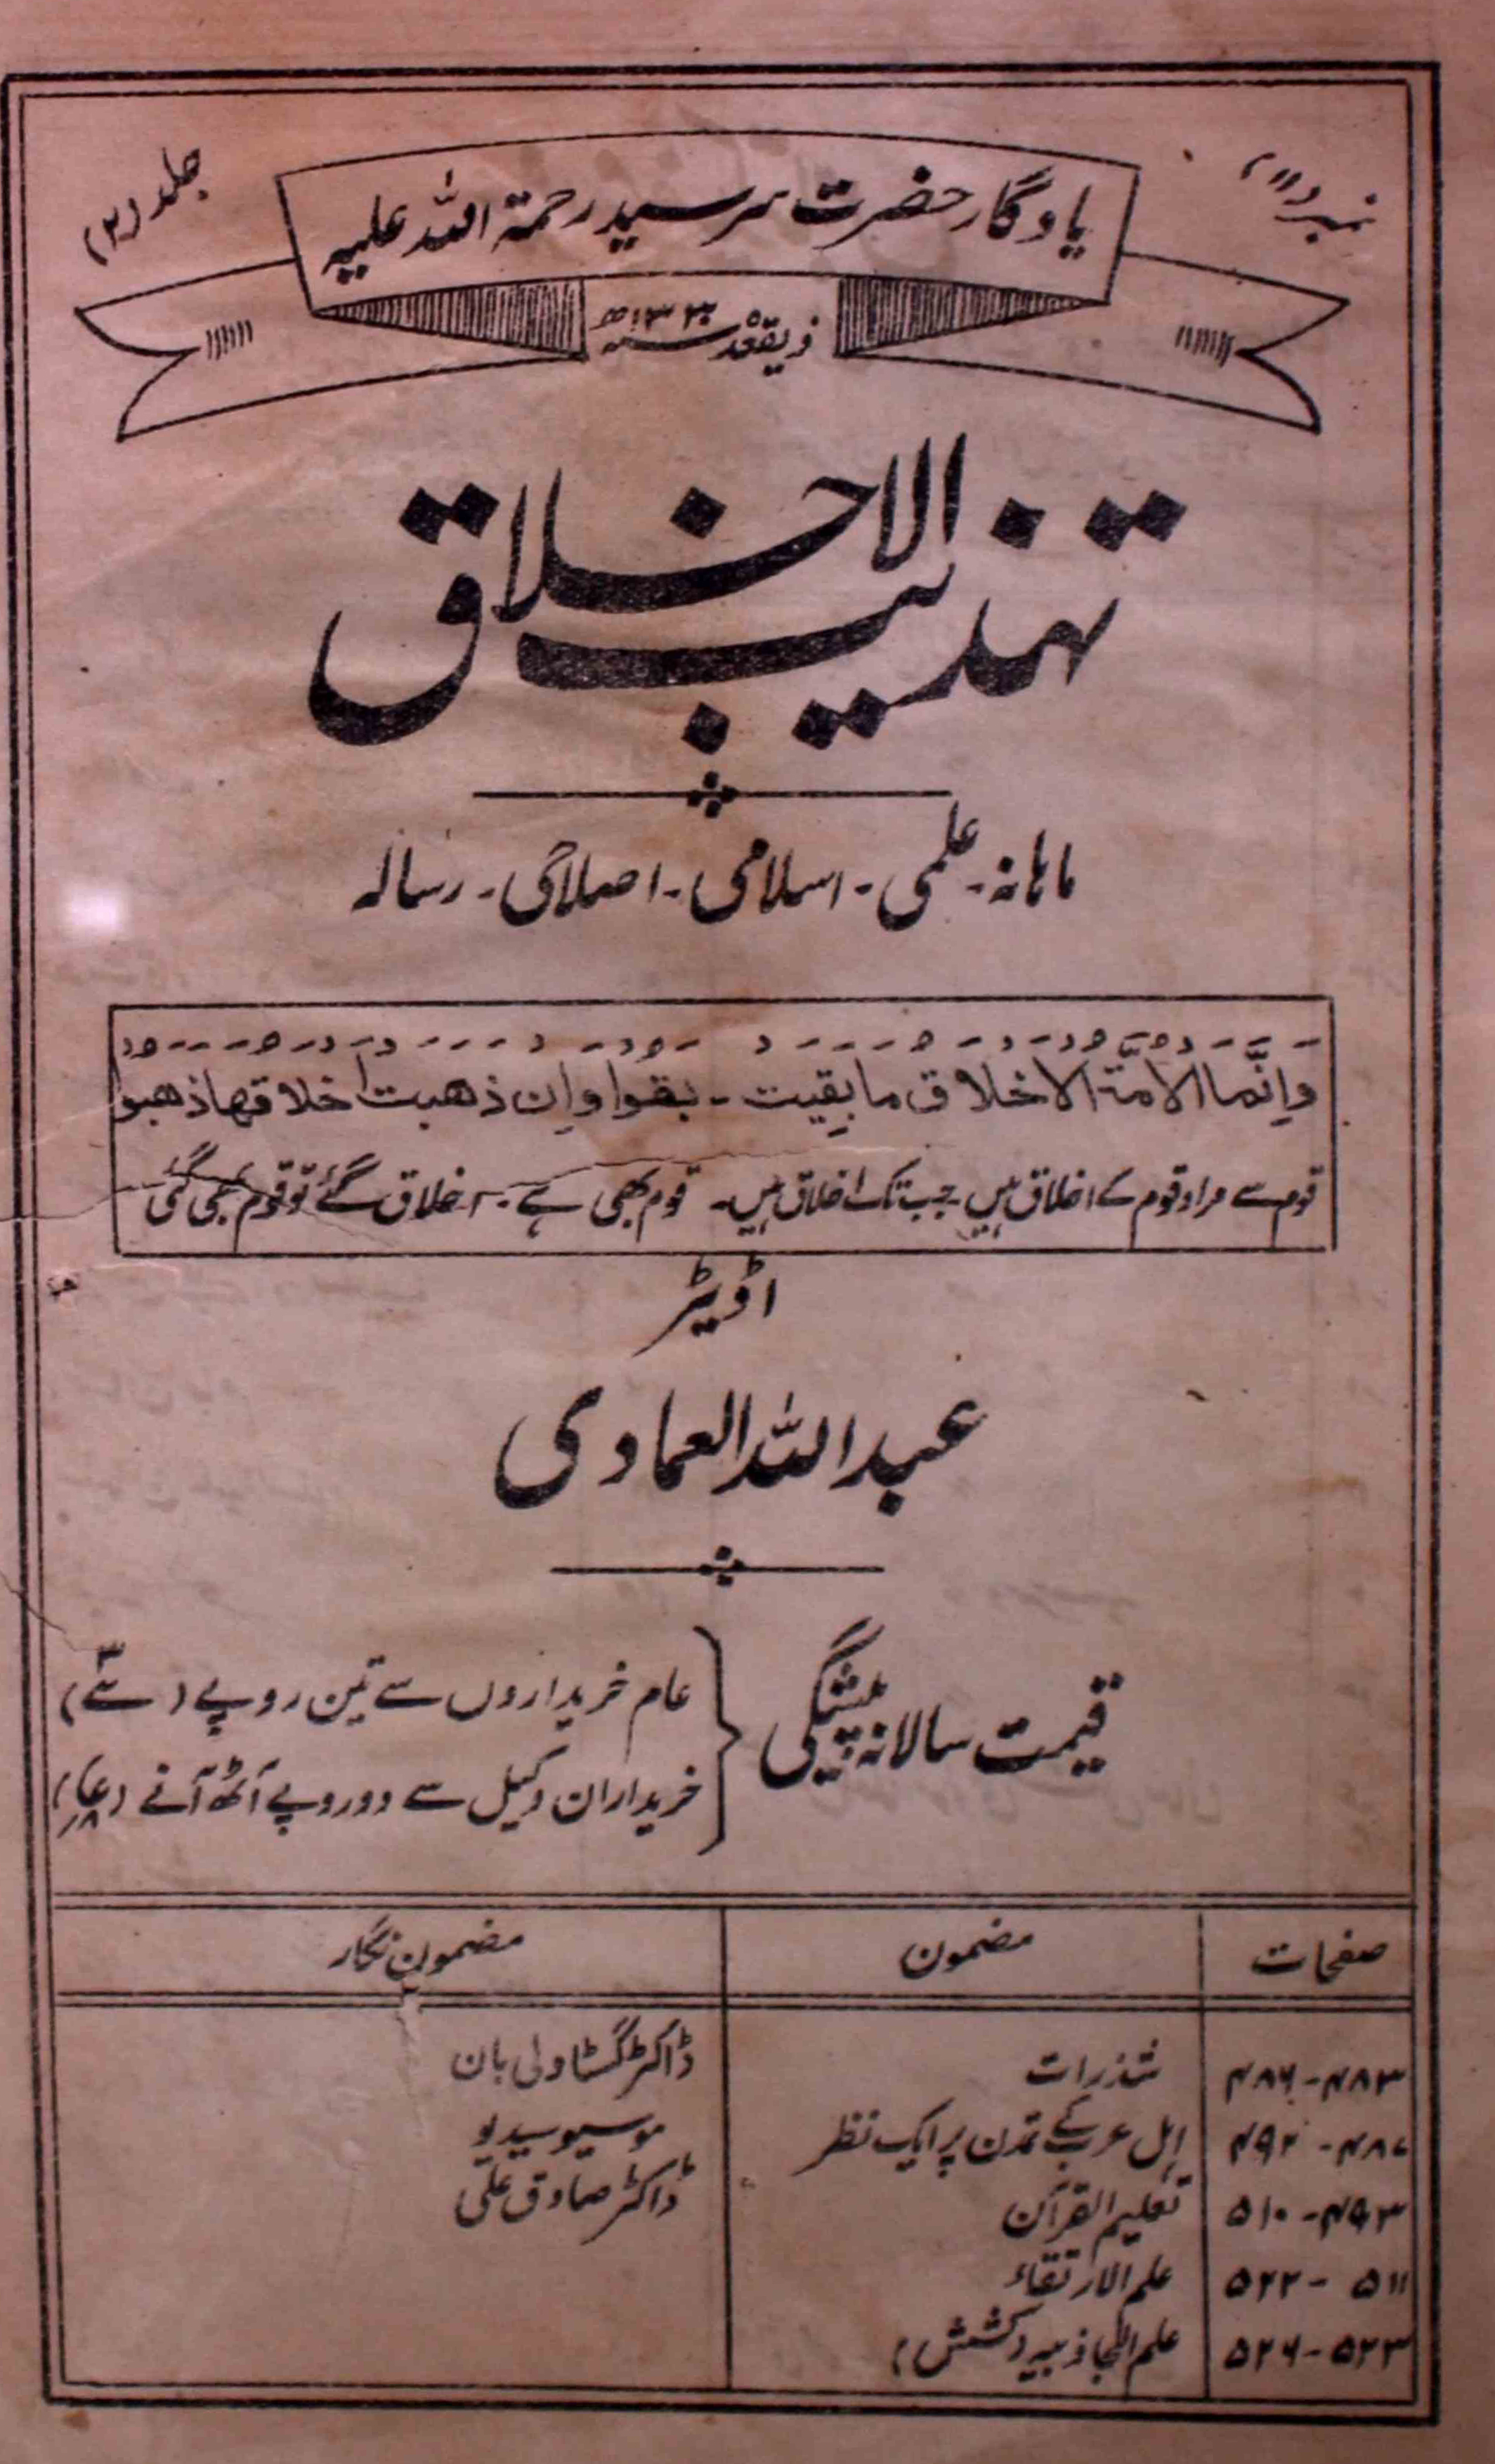 نمبر (۱۱)
جلد (۲)
یادگار حضرت سرسید رحمۃ اللہ علیہ
ذیقعدہ سنہ ۱۳۳۰ھ
تہذیب الاخلاق
ماہانہ - علمی - اسلامی - اصلاحی - رسالہ
وَاِنَّمَا الامۃ الاخلاق ما بقیت - بقوا وان ذھبت اخلاقھا ذھبوا
قوم سے مراد قوم کے اخلاق ہیں جب تک اخلاق ہیں - قوم بھی ہے - اخلاق گئے تو قوم بھی گئی
اڈیٹر
عبد اللہ العمادی
قیمت سالانہ پیشگی
عام خریداروں سے تین روپے
خریداران وکیل سے دو روپے آٹھ آنے
صفحات مضمون مضمون نگار
۴۸۳-۴۸۶ شذرات ڈاکٹر گستاولی بان
۴۸۷-۴۹۲ اہل عرب کے تمدن پر ایک نظر موسیو سیدیو
۴۹۳-۵۱۰ تعلیم القرآن ڈاکٹر صادق علی
۵۱۱-۵۲۲ علم الارتقاء
۵۲۳-۵۲۶ علم الجاذبیہ (کشش)